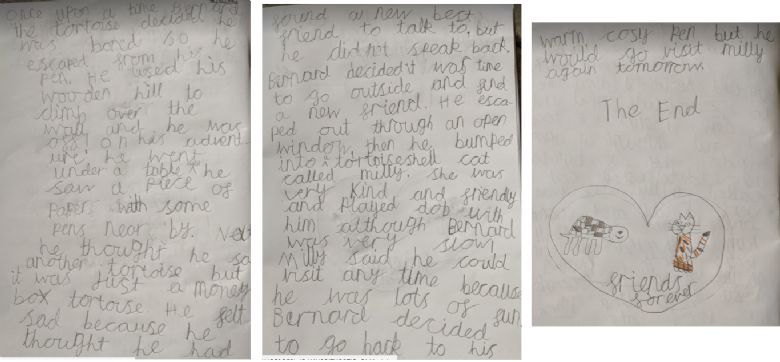 Once upon a time Bernard
the tortoise decided he
was bored so he
escaped from his
pen. He used his
wooden hill to
climb over the
wall and he was
off! on his advent
ure! he went
under a table. he
saw a piece of
paper with some
pens near by.
he thought he sa
another tortoise but
it was just a money
box tortoise. He felt
sad because he
thought he had
found a new best
friend to talk to, but
he did not speak back.
Bernard decided it was time
to go outside and find
a new friend. He esca-
ped out through an open
window, then he bumped
into a tortoiseshell cat
called milly. She was
very kind and friendly
and played with
him although Bernard
was very slow.
Milly said he could
visit any time because
he was lots of fun
Bernard decided
to go back to his
warm cosy pen but he
would go visit milly
again tomorrow.
The End
friends
forever